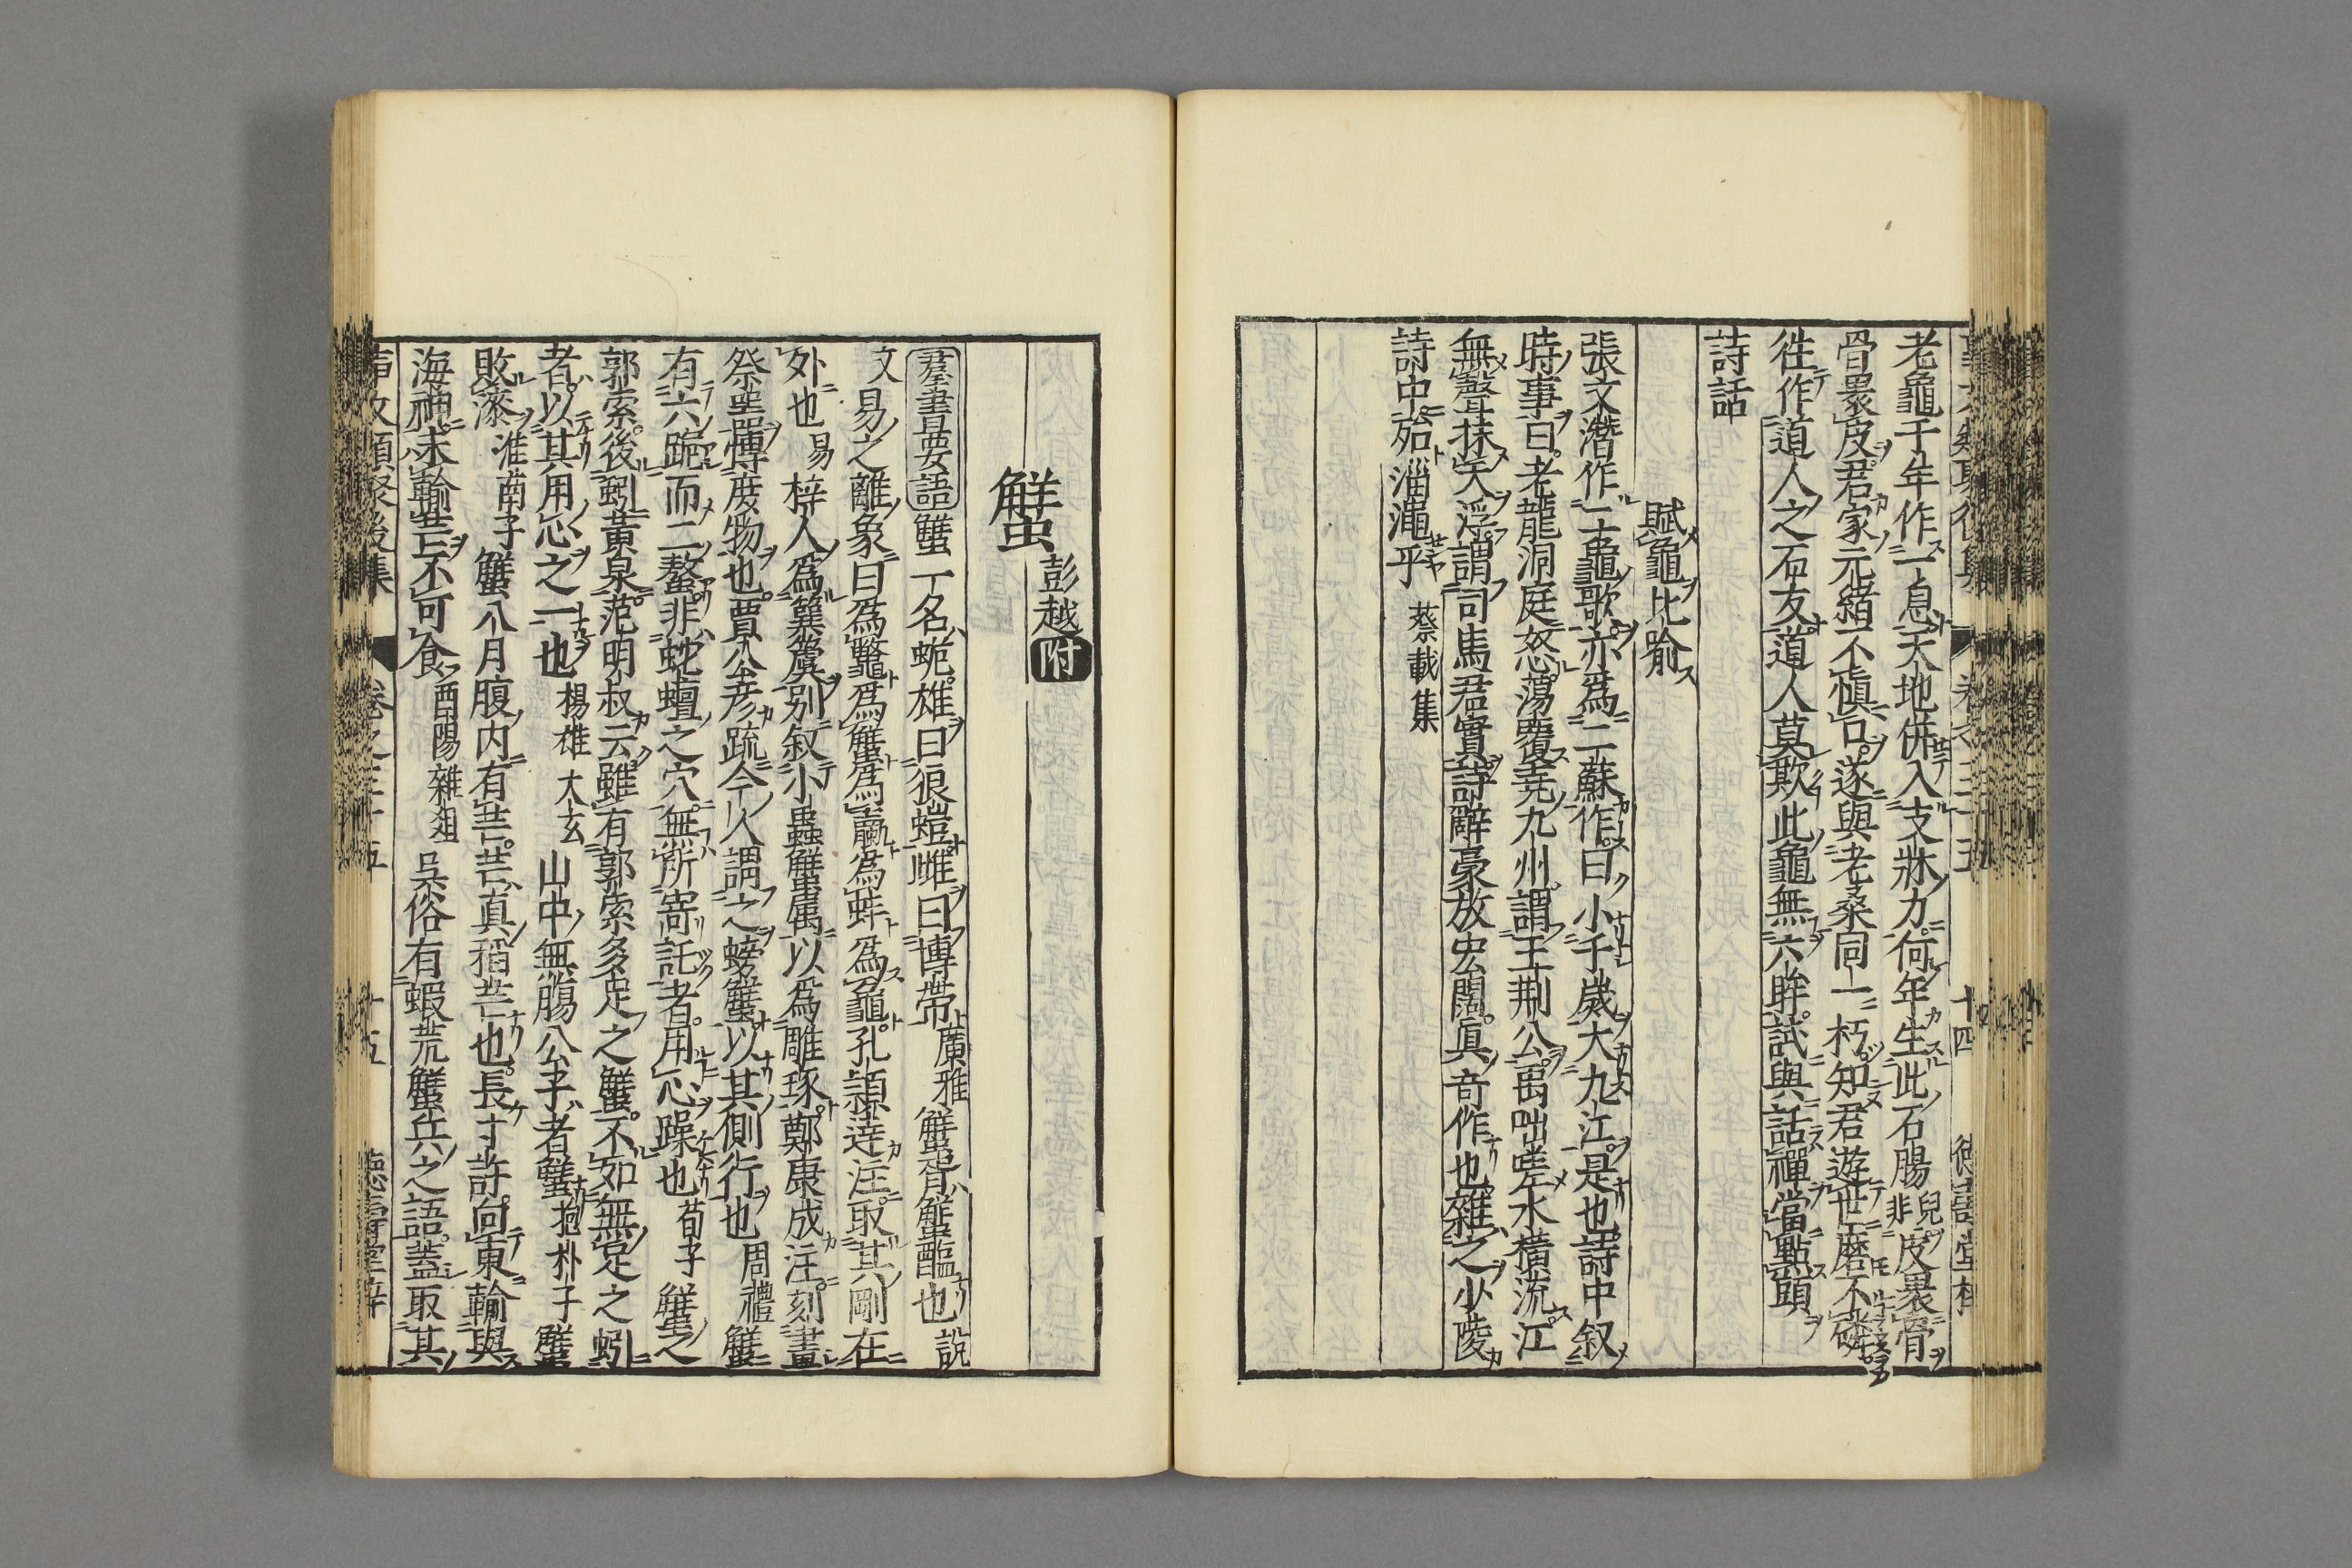 老龜千年作一息天地併入支牀力何年生此石腸兒皮裹骨
骨裹皮君家元緒不愼言遂與老桑同一朽知君遊世磨不磷
徃作道人之石友道人莫欺此龜無六眸試與話禪當點頭
詩話
賦龜比喻
張文潛作二龜歌亦爲二蘇作曰小千歲大九江是也詩中叙
時事曰老龍洞庭怒蕩覆堯九州謂王荆公禹咄嗟水橫流江
無聲抹天浮謂司馬君實詩辭豪放宏闊眞奇作也雜之少陵
詩中殆淄澠乎 蔡載集
蟹 彭越附
羣書要語 蟹一名蛫雄曰狼螘雌曰博帶廣雅蟹胥蟹醢也說
文易之離象曰爲鼈爲蟹爲蠃爲蚌爲龜孔頴逹注取其剛在
外也易梓人爲簨虡別叙小蟲蟹屬以爲雕琢鄭康成注刻畫
祭器博庶物也賈公彦疏今人謂之螃蟹以其側行也周禮蟹
有六跪而二螯非蛇蟺之穴無所寄託者用心躁也荀子蟹之
郭索後蚓黃泉范明叔云雖有郭索多足之蟹不如無足之蚓
者以其用心之一也楊雄大玄山中無腸公子者蟹抱朴子蟹
敗漆淮南子蟹八月腹内有芒芒真稻芒也長寸許向東輸與
海神未輸芒不可食酉陽雜俎吳俗有蝦荒蟹兵之語蓋取其